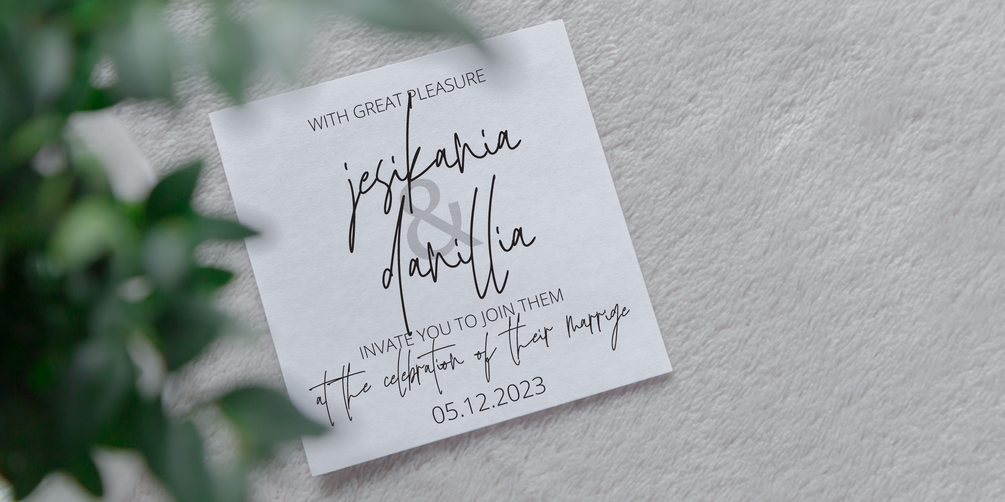 WITH GREAT PLEASURE
jesikania
&
danillia
INVATE YOU TO JOIN THEM
at the celebration of their marrige
05.12.2023